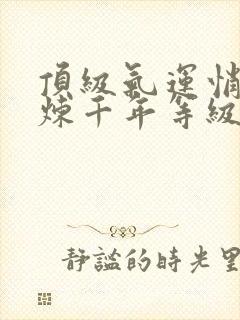 頂級氣運悄
煉千年等級
靜謐的時光里